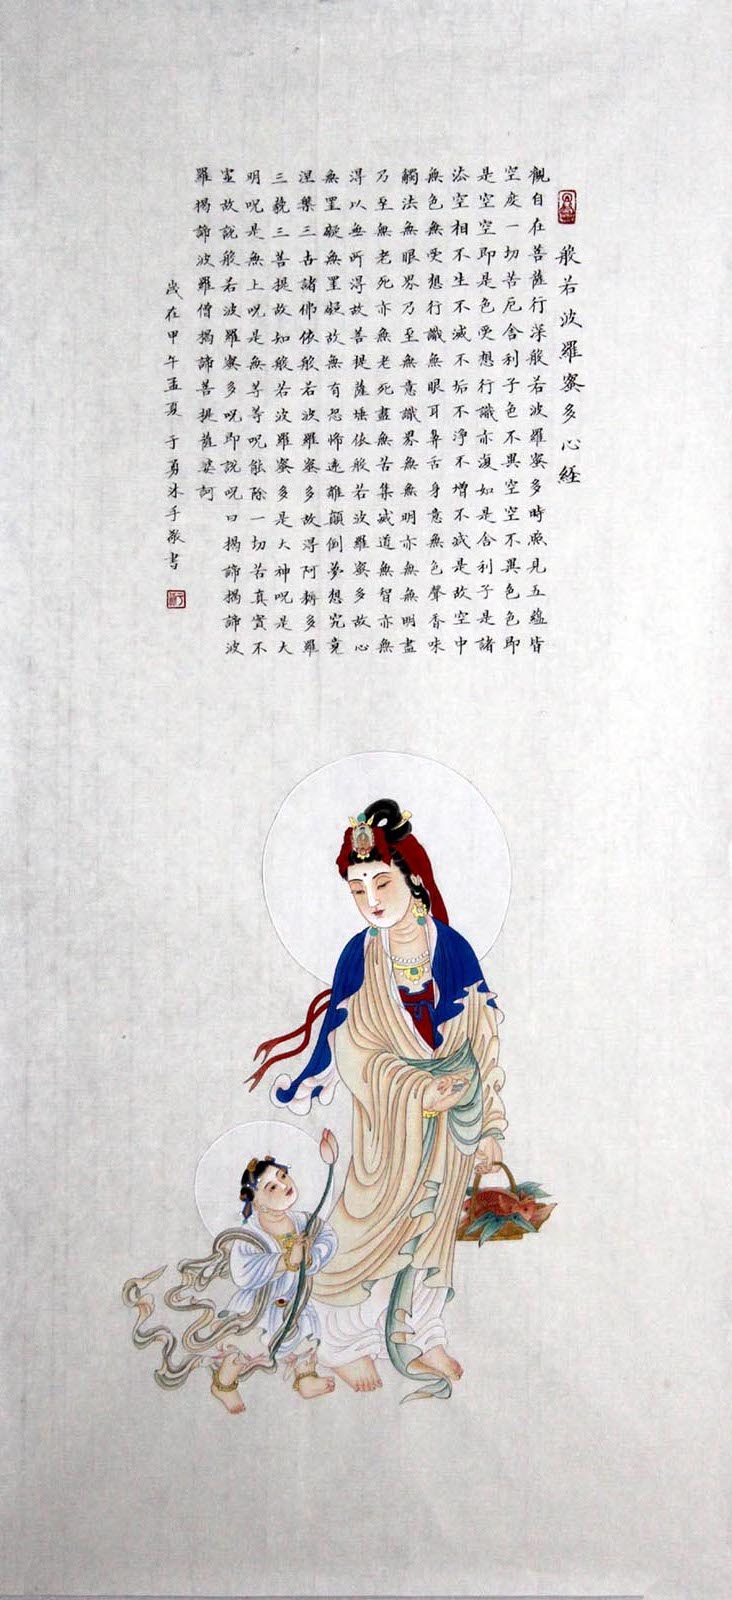 般若波羅蜜多心経
觀自在菩薩行深般若波羅蜜多時照見五蘊皆
空度一切苦厄舍利子色不異空空不異色色即
是空空即是色受想行識亦復如是舍利子是諸
法空相不生不滅不垢不淨不增不減是故空中
無色無受想行識無眼耳鼻舌身意無色聲香味
觸法無眼界乃至無意識界無無明亦無無明盡
乃至無老死亦無老死盡無苦集滅道無智亦無
得以無所得故菩提薩埵依般若波羅蜜多故心
無罣礙無罣礙故無有恐怖遠離顛倒夢想究竟
涅槃三世諸佛依般若波羅蜜多故得阿耨多羅
三藐三菩提故知般若波羅蜜多是大神呪是大
明呪是無上呪是無等等呪能除一切苦真實不
虛故說般若波羅蜜多呪即說呪曰揭諦揭諦波
羅揭諦波羅僧揭諦菩提薩婆訶
歲在甲午孟夏 于勇沐手敬書